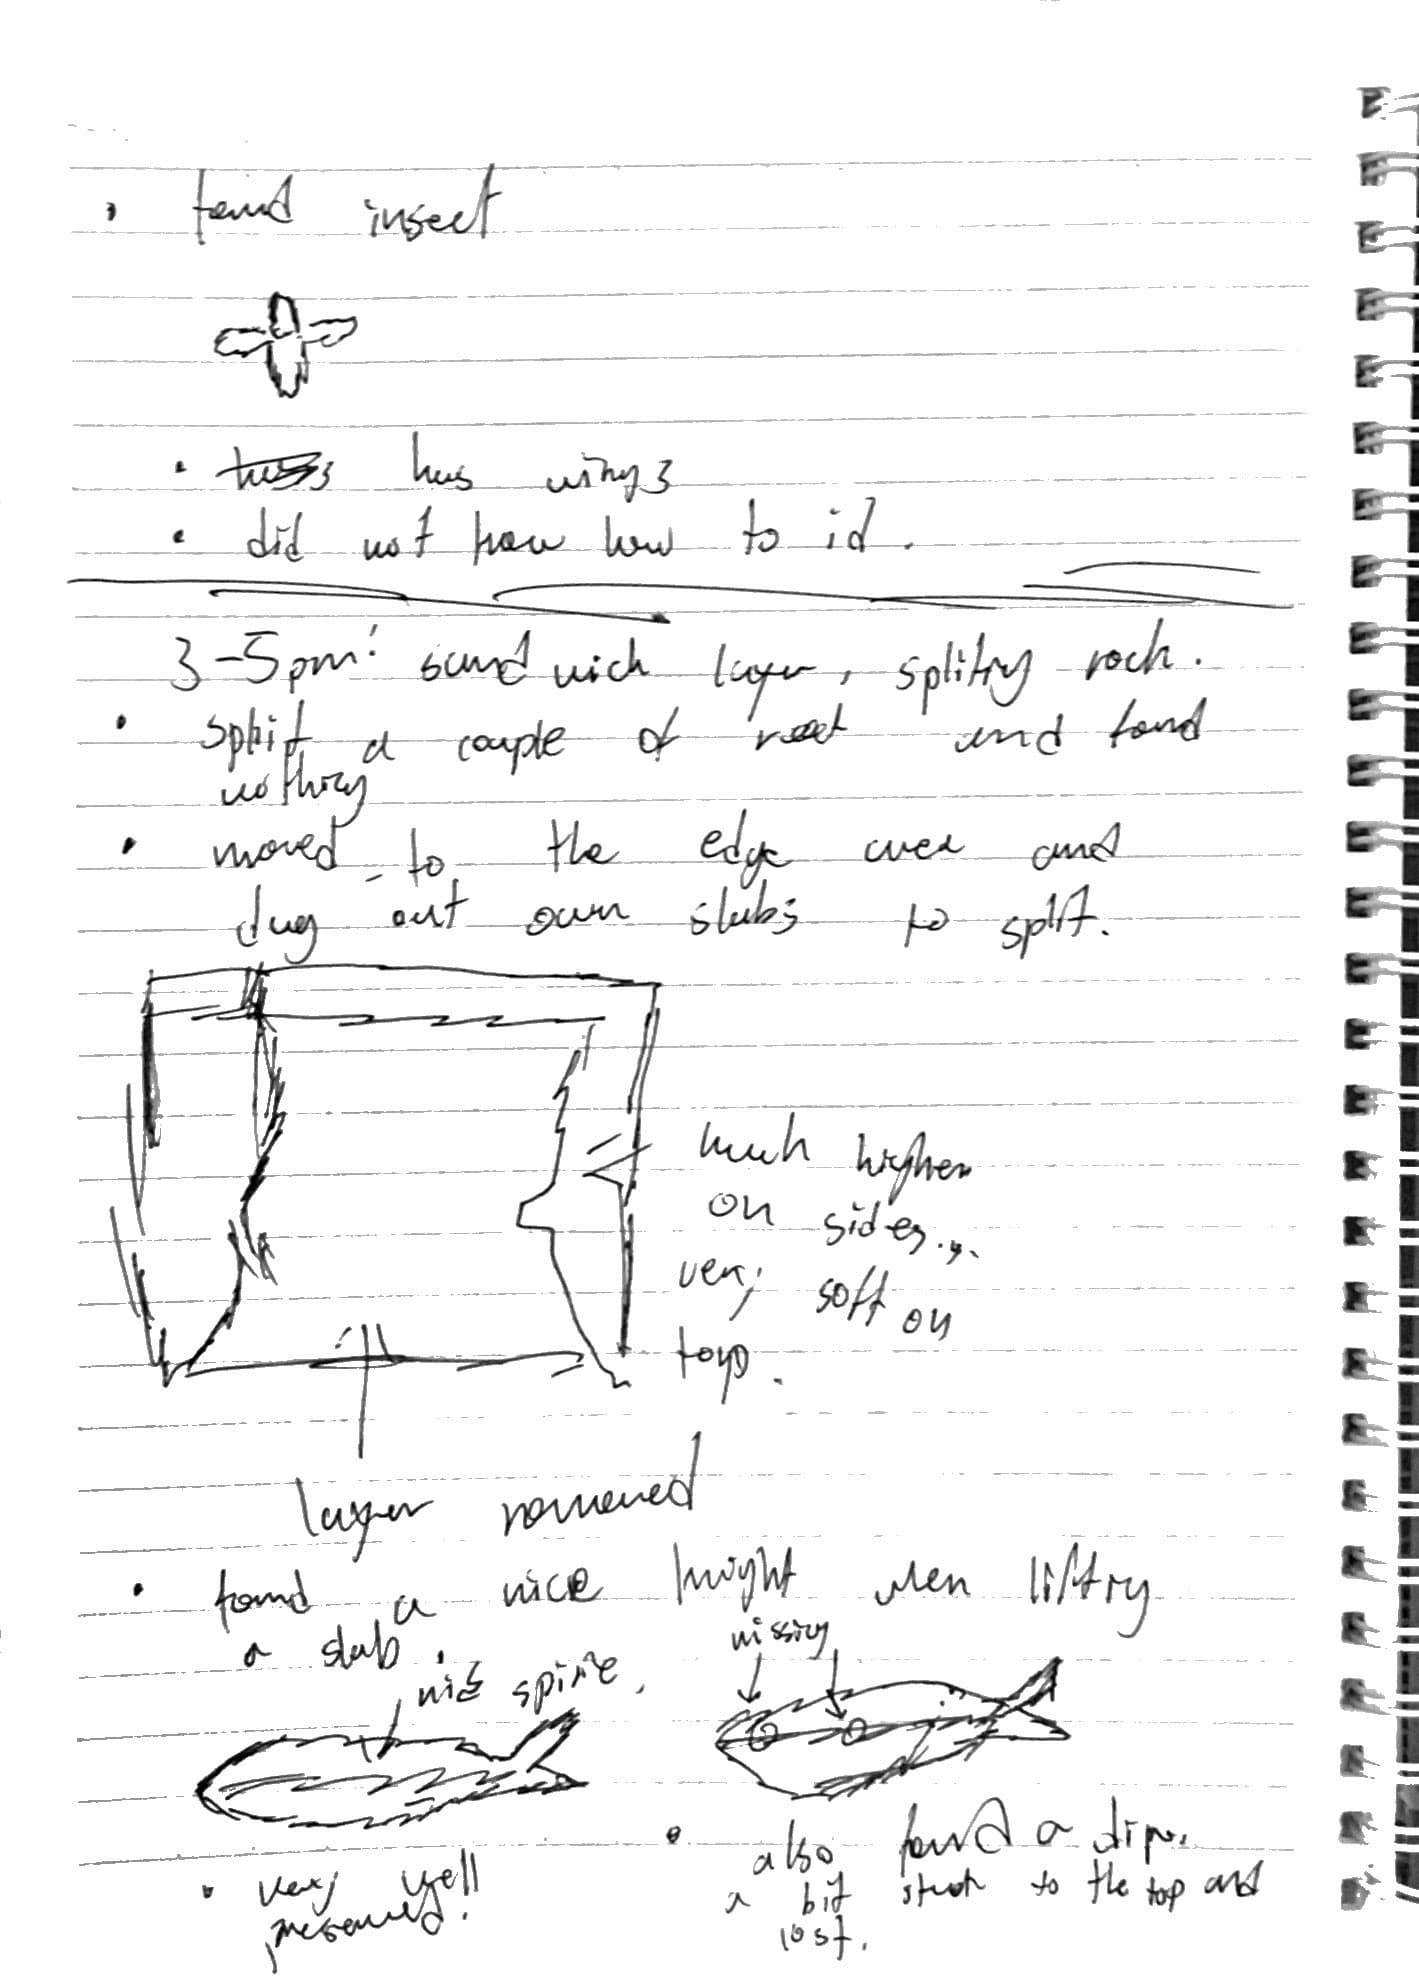 found insect
has wings
did not know how to id.
3-5pm: sandwich layer, splitting rock.
split a couple of and found
nothing
moved to the edge over and
dug out own slabs to split.
much higher
on sides...
very soft on
top.
layer removed
found a nice knight when lifting
a slab.
missing
nice spine.
also found a dip.
very well
a bit stuck to the top and
preserved!
lost.